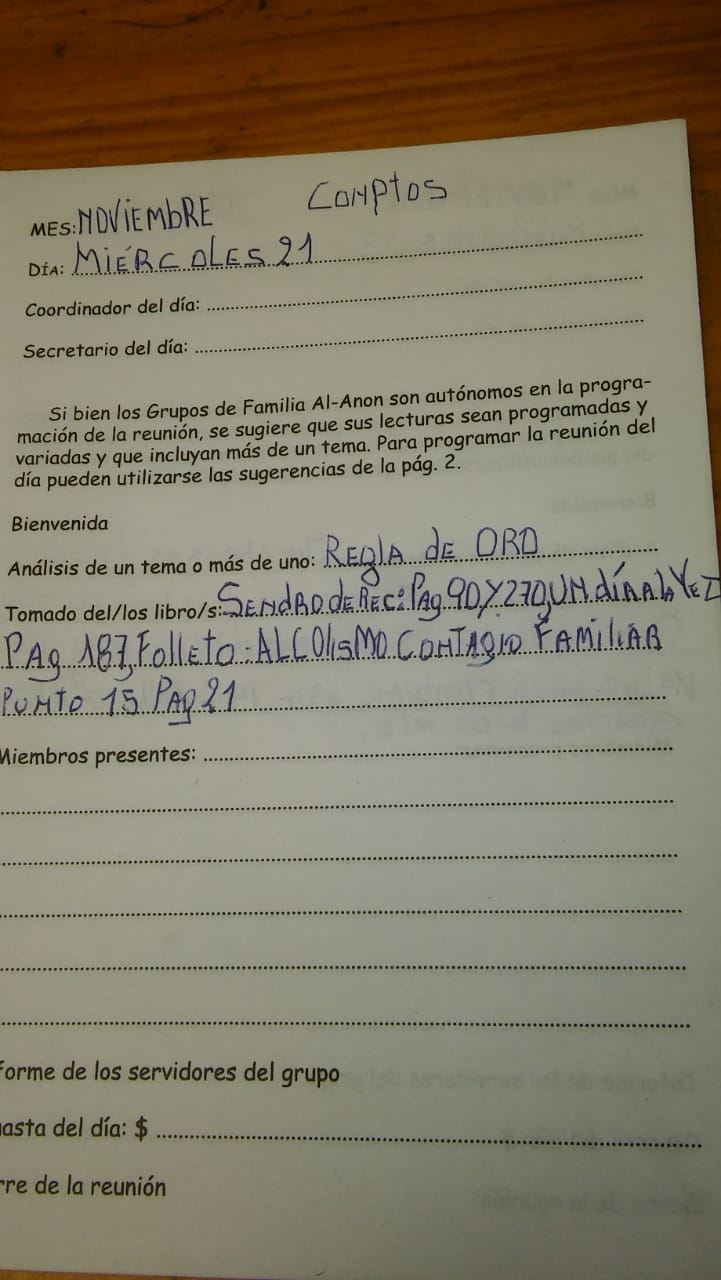 Conptos
MES: NOVIEMBRE
DÍA: MIÉRCOLES 21
Coordinador del día:
Secretario del día:
Si bien los Grupos de Familia Al-Anon son autónomos en la progra-
mación de la reunión, se sugiere que sus lecturas sean programadas y
variadas y que incluyan más de un tema. Para programar la reunión del
día pueden utilizarse las sugerencias de la pág. 2.
Bienvenida
Análisis de un tema o más de uno: REglA dE ORO
Tomado del/los libro/s: SENdRO de REC: PAg 90 Y 270, UN díA A lA VEZ
PAg 187, FOllETO: ALCOlisMO CONTAgIO FAMiliAR
PUNTO 15 PAg 21
Miembros presentes:
forme de los servidores del grupo
asta del día: $
rre de la reunión